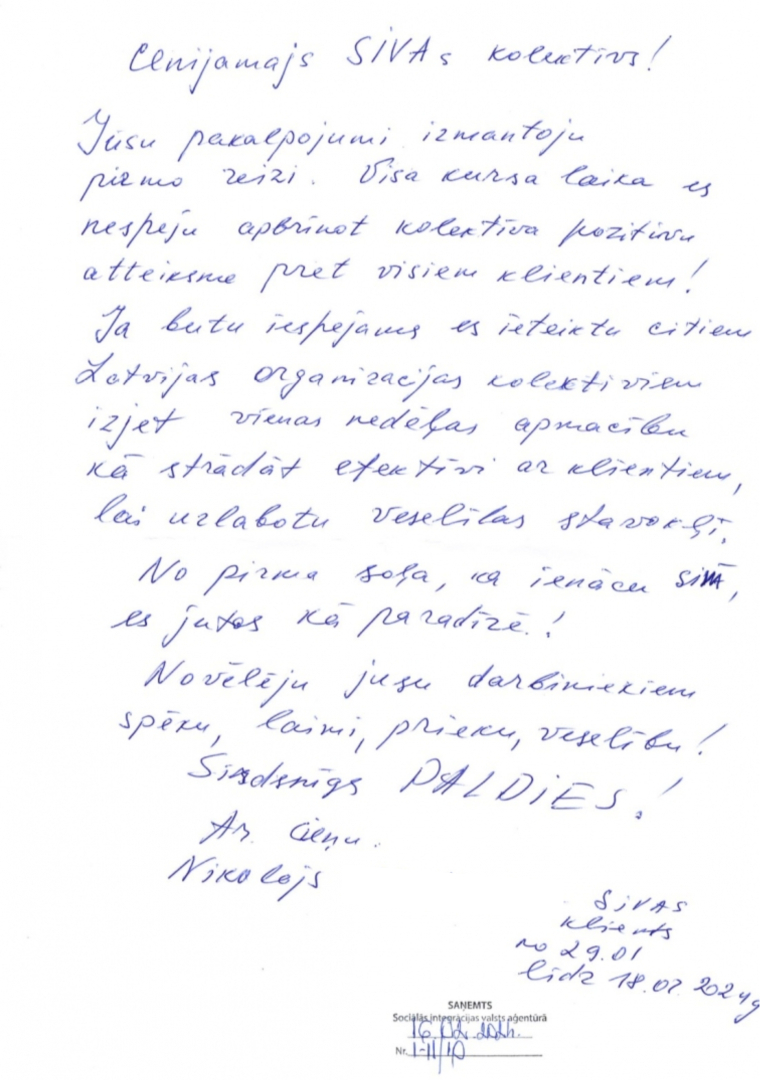 Cenijamajs SIVAs kolektivs!
Jūsu pakalpojumi izmantoju
pirmo reizi. Visa kursa laika es
nespeju apbrinot kolektīva pozitivu
atteiksme pret visiem klientiem!
Ja butu iespejams es ieteiktu citiem
Latvijas organizacijas kolektiviem
iziet vienas nedēļas apmacību
kā strādāt efektīvi ar klientiem,
lai uzlabotu veselības stavokļi.
No pirma soļa, ka ienācu SIVĀ,
es jutos kā paradīzē!
Novēlēju jusu darbiniekiem
spēku, laimi, prieku, veselību!
Sirdsnīgs PALDIES!
Ar cieņu.
Nikolajs
SIVAS
klients
no 29.01
līdz 18.02.2024 g
SAŅEMTS
Sociālās integrācijas valsts aģentūrā
16.02.2024.
Nr. 1-11/10